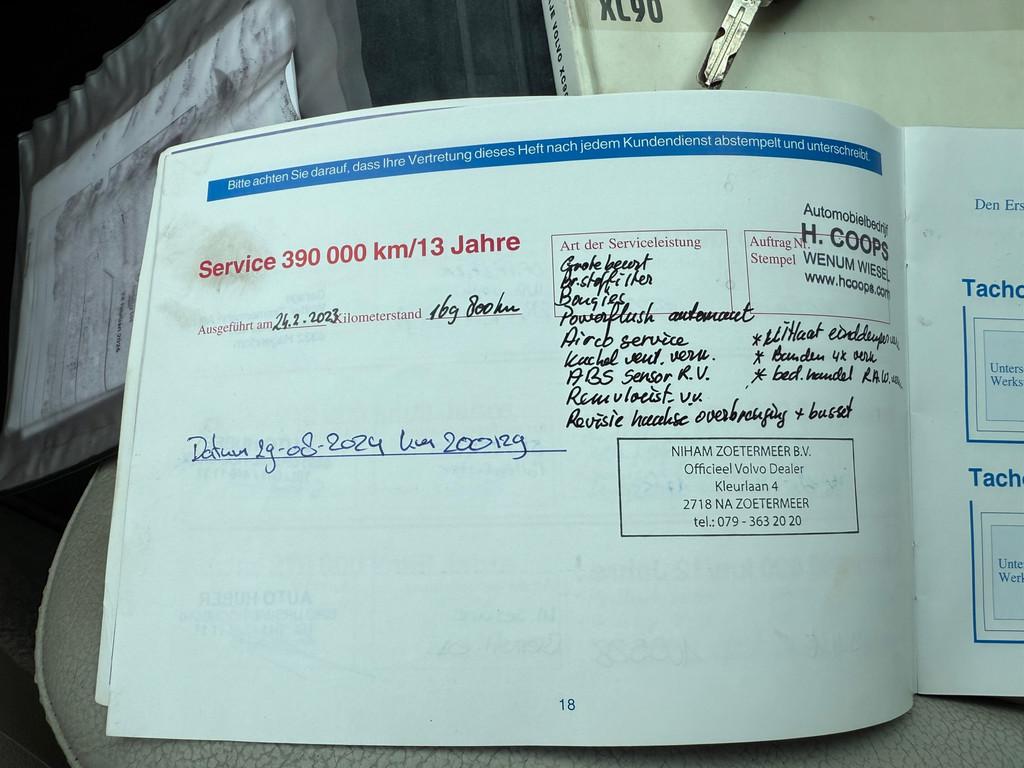 XL90
JE VOLVO XC9
Bitte achten Sie darauf, dass Ihre Vertretung dieses Heft nach jedem Kundendienst abstempelt und unterschreibt.
Service 390 000 km/13 Jahre
Ausgeführt am 24.2.2023 Kilometerstand 169 800 km
Art der Serviceleistung
Grote beurt
Br.stoffilter
Bougies
Powerflush automaat
Airco service
Kachel vent. verv.
ABS Sensor R.V.
Remvloeist. v.v.
Revisie haakse overbrenging + busset
Auftrag Nr.
Stempel
Automobielbedrijf
H. COOPS
WENUM WIESEL
www.hcoops.com
* Banden 4x verv
* bed. handel R.A.
Datum 29-08-2024 km 200129
NIHAM ZOETERMEER B.V.
Officieel Volvo Dealer
Kleurlaan 4
2718 NA ZOETERMEER
tel.: 079 - 363 20 20
18
Den Ers
Tacho
Unters
Werks
Tacho
Unte
Werk